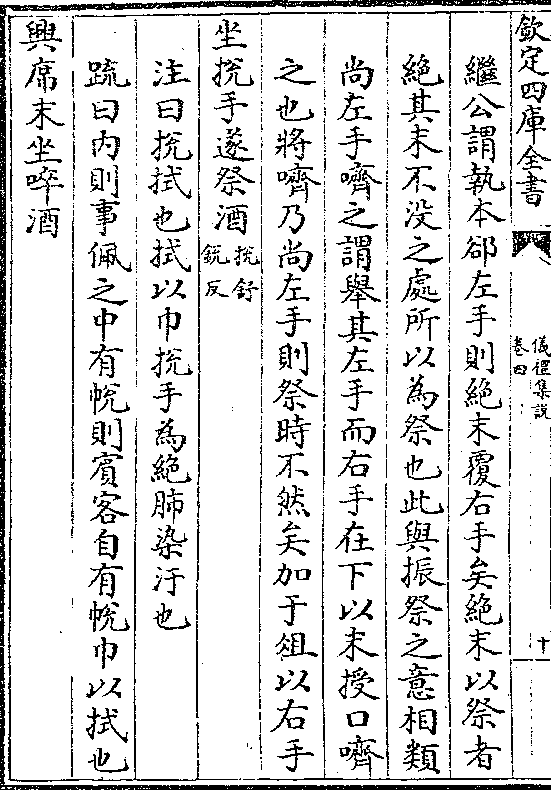 欽定四庫全書
儀禮集說
卷四
十
繼公謂執本郤左手則絶末覆右手矣絶末以祭者
絶其末不没之處所以為祭也此與振祭之意相類
尚左手嚌之謂舉其左手而右手在下以末授口嚌
之也將嚌乃尚左手則祭時不然矣加于俎以右手
坐挩手遂祭酒挩舒
銳反
注曰挩拭也拭以巾挩手為絶肺染汙也
疏曰内則事佩之中有帨則賓客自有帨巾以拭也
興席末坐啐酒